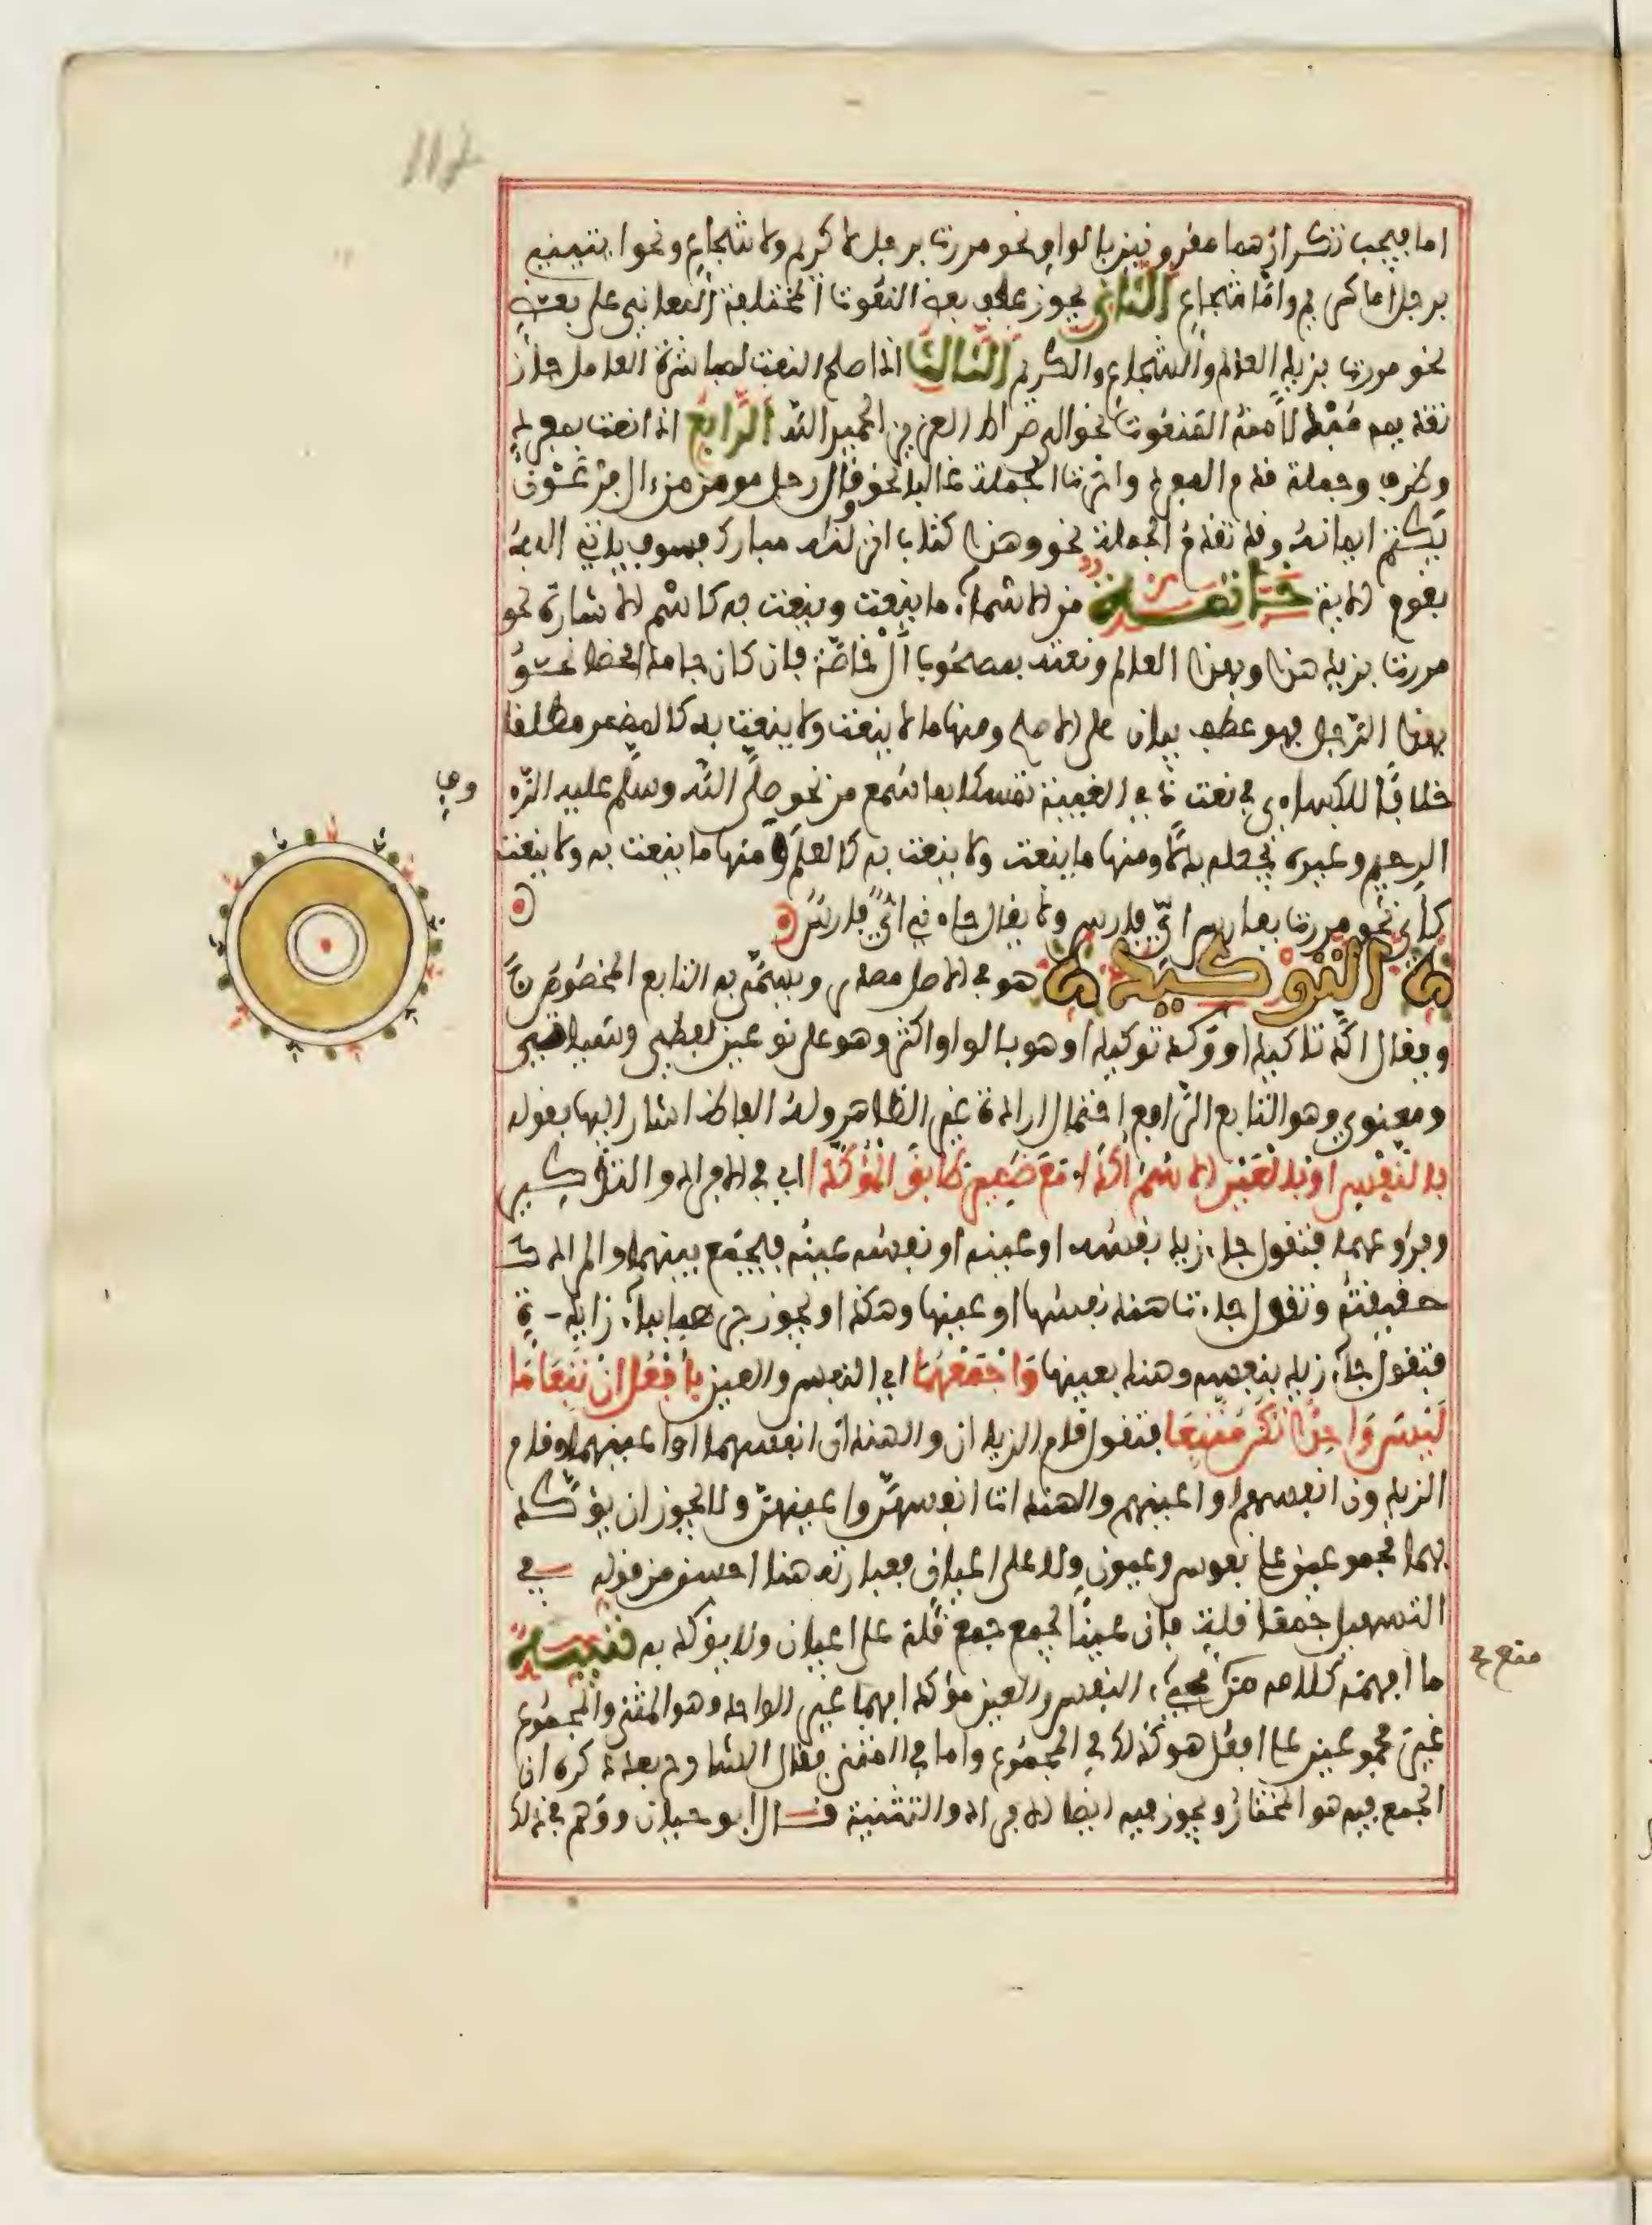 112
اما فيجب تكرارهما مقرونين بالواو نحو مررت برجل لا كريم ولا شجاع ونحو ايتني
برجل اما كريم واما شجاع الثاني يجوز عطف بعض النعوت المختلفة المعاني على بعض
نحو مررت بزيد العالم والشجاع والكريم الثالث اذا صلح النعت لمباشرة العامل جاز
تقديمه مبدلا منه المنعوت نحو الى صراط العزيز الحميد الله الرابع اذا نعت بمفرد
وظرف وجملة قدم المفرد واخرت الجملة غالبا نحو وقال رجل مومن من ءال فرعون
يكتم ايمانه وقد تقدم الجملة نحو وهذا كتاب انزلناه مبارك فسوف ياتي الله
بقوم الاية خاتمة من الاسماء ما ينعت وينعت به كاسم الاشارة نحو
مررت بزيد هذا وبهذا العالم ونعته بمصحوب ال خاصة فان كان جامدا محضا نحو
بهذا الرجل فهو عطف بيان على الاصح ومنها ما لا ينعت ولا ينعت به كالمضمر مطلقا
خلافا للكساءي في نعت ذي الغيبة تمسكا بما سمع من نحو صلى الله وسلم عليه الرءو
وف
الرحيم وغيره يجعله بدلا ومنها ما ينعت ولا ينعت به كالعلم ومنها ما ينعت به ولا ينعت
كاي نحو مررت بفارس اي فارس ولا يقال جاءني اي فارس
التوكيد هو في الاصل مصدر ويسمى به التابع المخصوص
ويقال اكد تاكيدا ووكد توكيدا وهو بالواو اكثر وهو على نوعين لفظي وسياتي
ومعنوي وهو التابع الرافع احتمال ارادة غير الظاهر وله الفاظ اشار اليها بقوله
بالنفس او بالعين الاسم اكدا مع ضمير طابق المؤكدا اي في الافراد والتذكير
وفروعهما فتقول جاء زيد نفسه او عينه او نفسه عينه فيجمع بينهما والمراد
حقيقته وتقول جاءت هند نفسها او عينها وهكذا ويجوز جرهما بباء زايدة
فتقول جاء زيد بنفسه وهند بعينها واجمعهما اي النفس والعين بافعل ان تبعا ما
ليس واحدا تكن متبعا فتقول قام الزيدان والهندان انفسهما او اعينهما وقام
الزيدون انفسهم او اعينهم والهندات انفسهن او اعينهن ولا يجوز ان يؤكد
بهما مجموعين على نفوس وعيون ولا على اعيان فعبارته هنا احسن من قوله في
التسهيل جمع قلة فان عينا تجمع جمع قلة على اعيان ولا يؤكد به تنبيه
ما افهمه كلامه من مجيء النفس والعين مؤكدا بهما غير الواحد وهو المثنى والمجموع
منع ح
غير مجموعين على افعل هو كذلك في المجموع واما في المثنى فقال الشارح بعد ذكره ان
الجمع فيه هو المختار ويجوز فيه ايضا الافراد والتثنية قال ابو حيان ووهم في ذلك